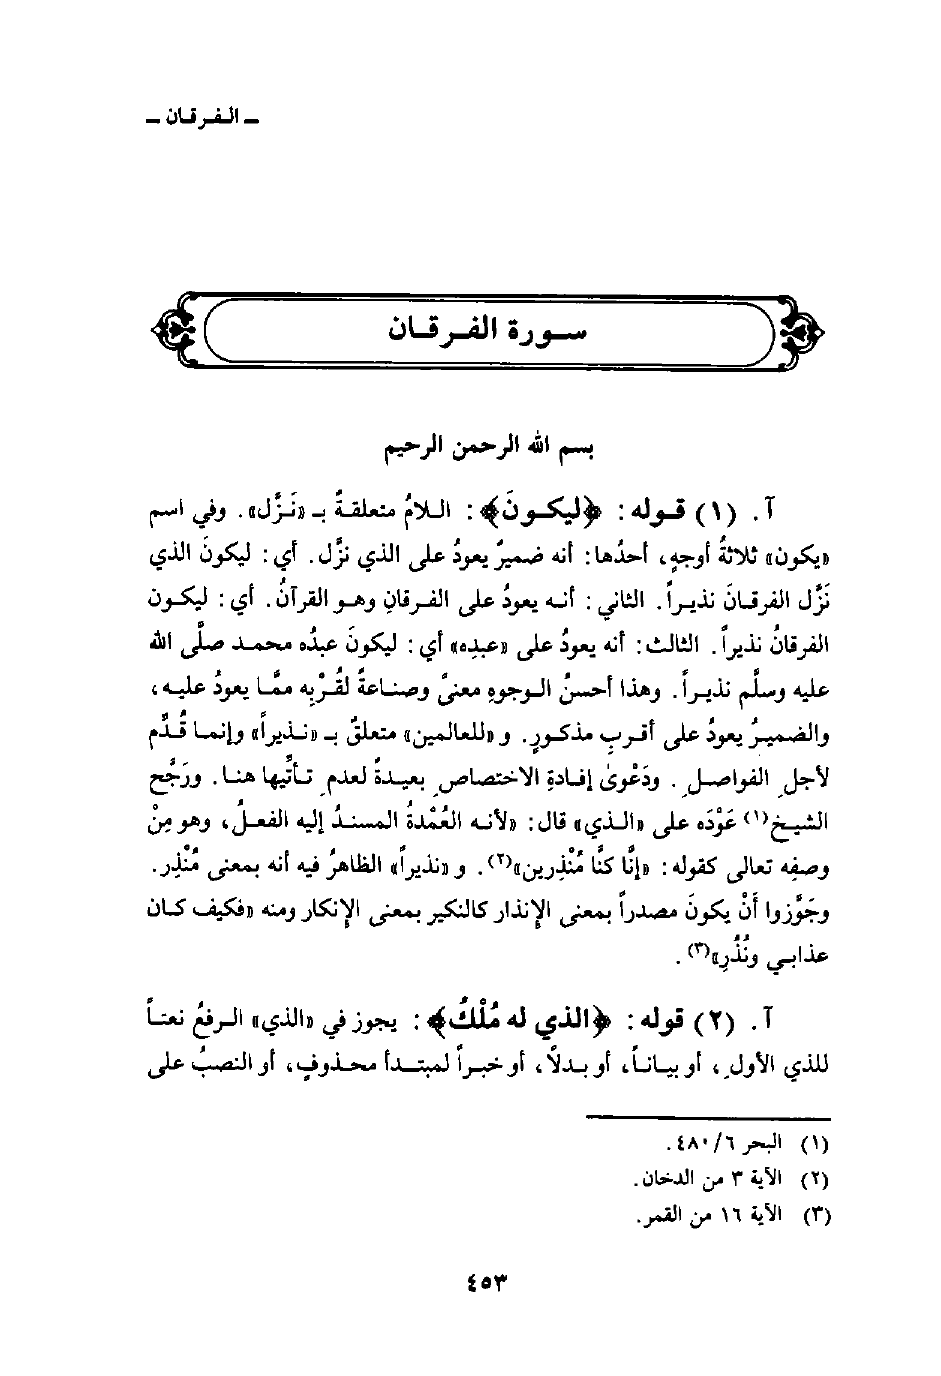 ـ الفرقان ـ
سورة الفرقان
بسم الله الرحمن الرحيم
آ. (١) قوله: ﴿ليكونَ﴾: اللامُ متعلقةٌ بـ «نَزَّل». وفي اسم
«يكون» ثلاثةُ أوجهٍ، أحدُها: أنه ضميرٌ يعودُ على الذي نزَّل. أي: ليكونَ الذي
نَزَّل الفرقانَ نذيراً. الثاني: أنه يعودُ على الفرقانِ وهو القرآنُ. أي: ليكون
الفرقانُ نذيراً. الثالث: أنه يعودُ على «عبدِه» أي: ليكونَ عبدُه محمد صلَّى الله
عليه وسلَّم نذيراً. وهذا أحسنُ الوجوهِ معنىً وصناعةً لقُرْبِه ممَّا يعودُ عليه،
والضميرُ يعودُ على أقربِ مذكورٍ. و «للعالمين» متعلقٌ بـ «نذيراً» وإنما قُدِّم
لأجلِ الفواصلِ. ودَعْوىٰ إفادةِ الاختصاصِ بعيدةٌ لعدمِ تأتِّيها هنا. ورَجَّح
الشيخ(١) عَوْدَه على «الذي» قال: «لأنه العُمْدةُ المسندُ إليه الفعلُ، وهو مِنْ
وصفِه تعالى كقوله: «إنَّا كنَّا مُنْذِرين»(٢). و «نذيراً» الظاهرُ فيه أنه بمعنى مُنْذِر.
وجَوَّزوا أَنْ يكونَ مصدراً بمعنى الإِنذار كالنكير بمعنى الإِنكار ومنه «فكيف كان
عذابي ونُذُرِ»(٣).
آ. (٢) قوله: ﴿الذي له مُلْكُ﴾: يجوز في «الذي» الرفعُ نعتاً
للذي الأولِ، أو بياناً، أو بدلاً، أو خبراً لمبتدأ محذوفٍ، أو النصبُ على
(١) البحر ٤٨٠/٦.
(٢) الآية ٣ من الدخان.
(٣) الآية ١٦ من القمر.
٤٥٣